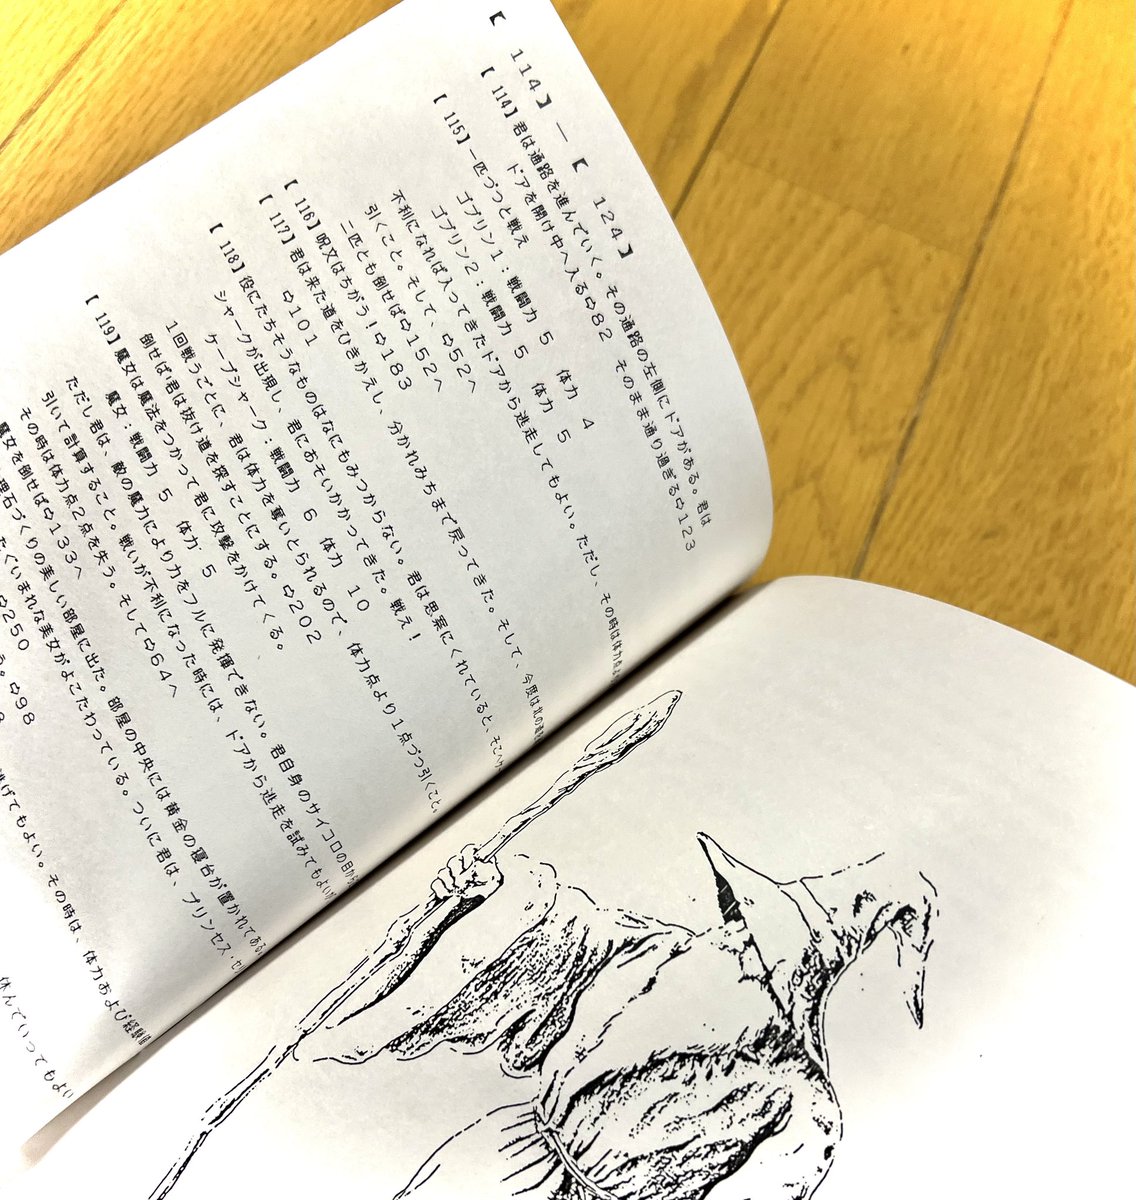 【114】―【124】
【114】君は通路を進んでいく。その通路の左側にドアがある。君は
ドアを開け中へ入る⇨82　そのまま通り過ぎる⇨123
【115】一匹づつと戦え
ゴブリン1：戦闘力　5　体力　4
ゴブリン2：戦闘力　5　体力　5
不利になれば入ってきたドアから逃走してもよい。ただし、その時は体力点よ
引くこと。そして、⇨52へ
二匹とも倒せば⇨152へ
【116】呪文はちがう！⇨183
【117】君は来た道をひきかえし、分かれみちまで戻ってきた。そして、今度は北の
⇨101
【118】役にたちそうなものはなにもみつからない。君は思案にくれていると、そこへ
シャークが出現し、君におそいかかってきた。戦え！
ケーブシャーク：戦闘力　6　体力　10
1回戦うごとに、君は体力を奪いとられるので、体力点より1点づつ引くこと。
倒せば君は抜け道を探すことにする。⇨202
【119】魔女は魔法をつかって君に攻撃をかけてくる。
魔女：戦闘力　5　体力　5
ただし君は、敵の魔力により力をフルに発揮できない。君自身のサイコロの目から
引いて計算すること。戦いが不利になった時には、ドアから逃走を試みてもよい
その時は体力点2点を失う。そして⇨64へ
魔女を倒せば⇨133へ
理石づくりの美しい部屋に出た。部屋の中央には黄金の寝台が置かれてある
たぐいまれな美女がよこたわっている。ついに君は、プリンセス・セ
⇨250
う。⇨98
逃げてもよい。その時は、体力および経験
休んでいってもよい